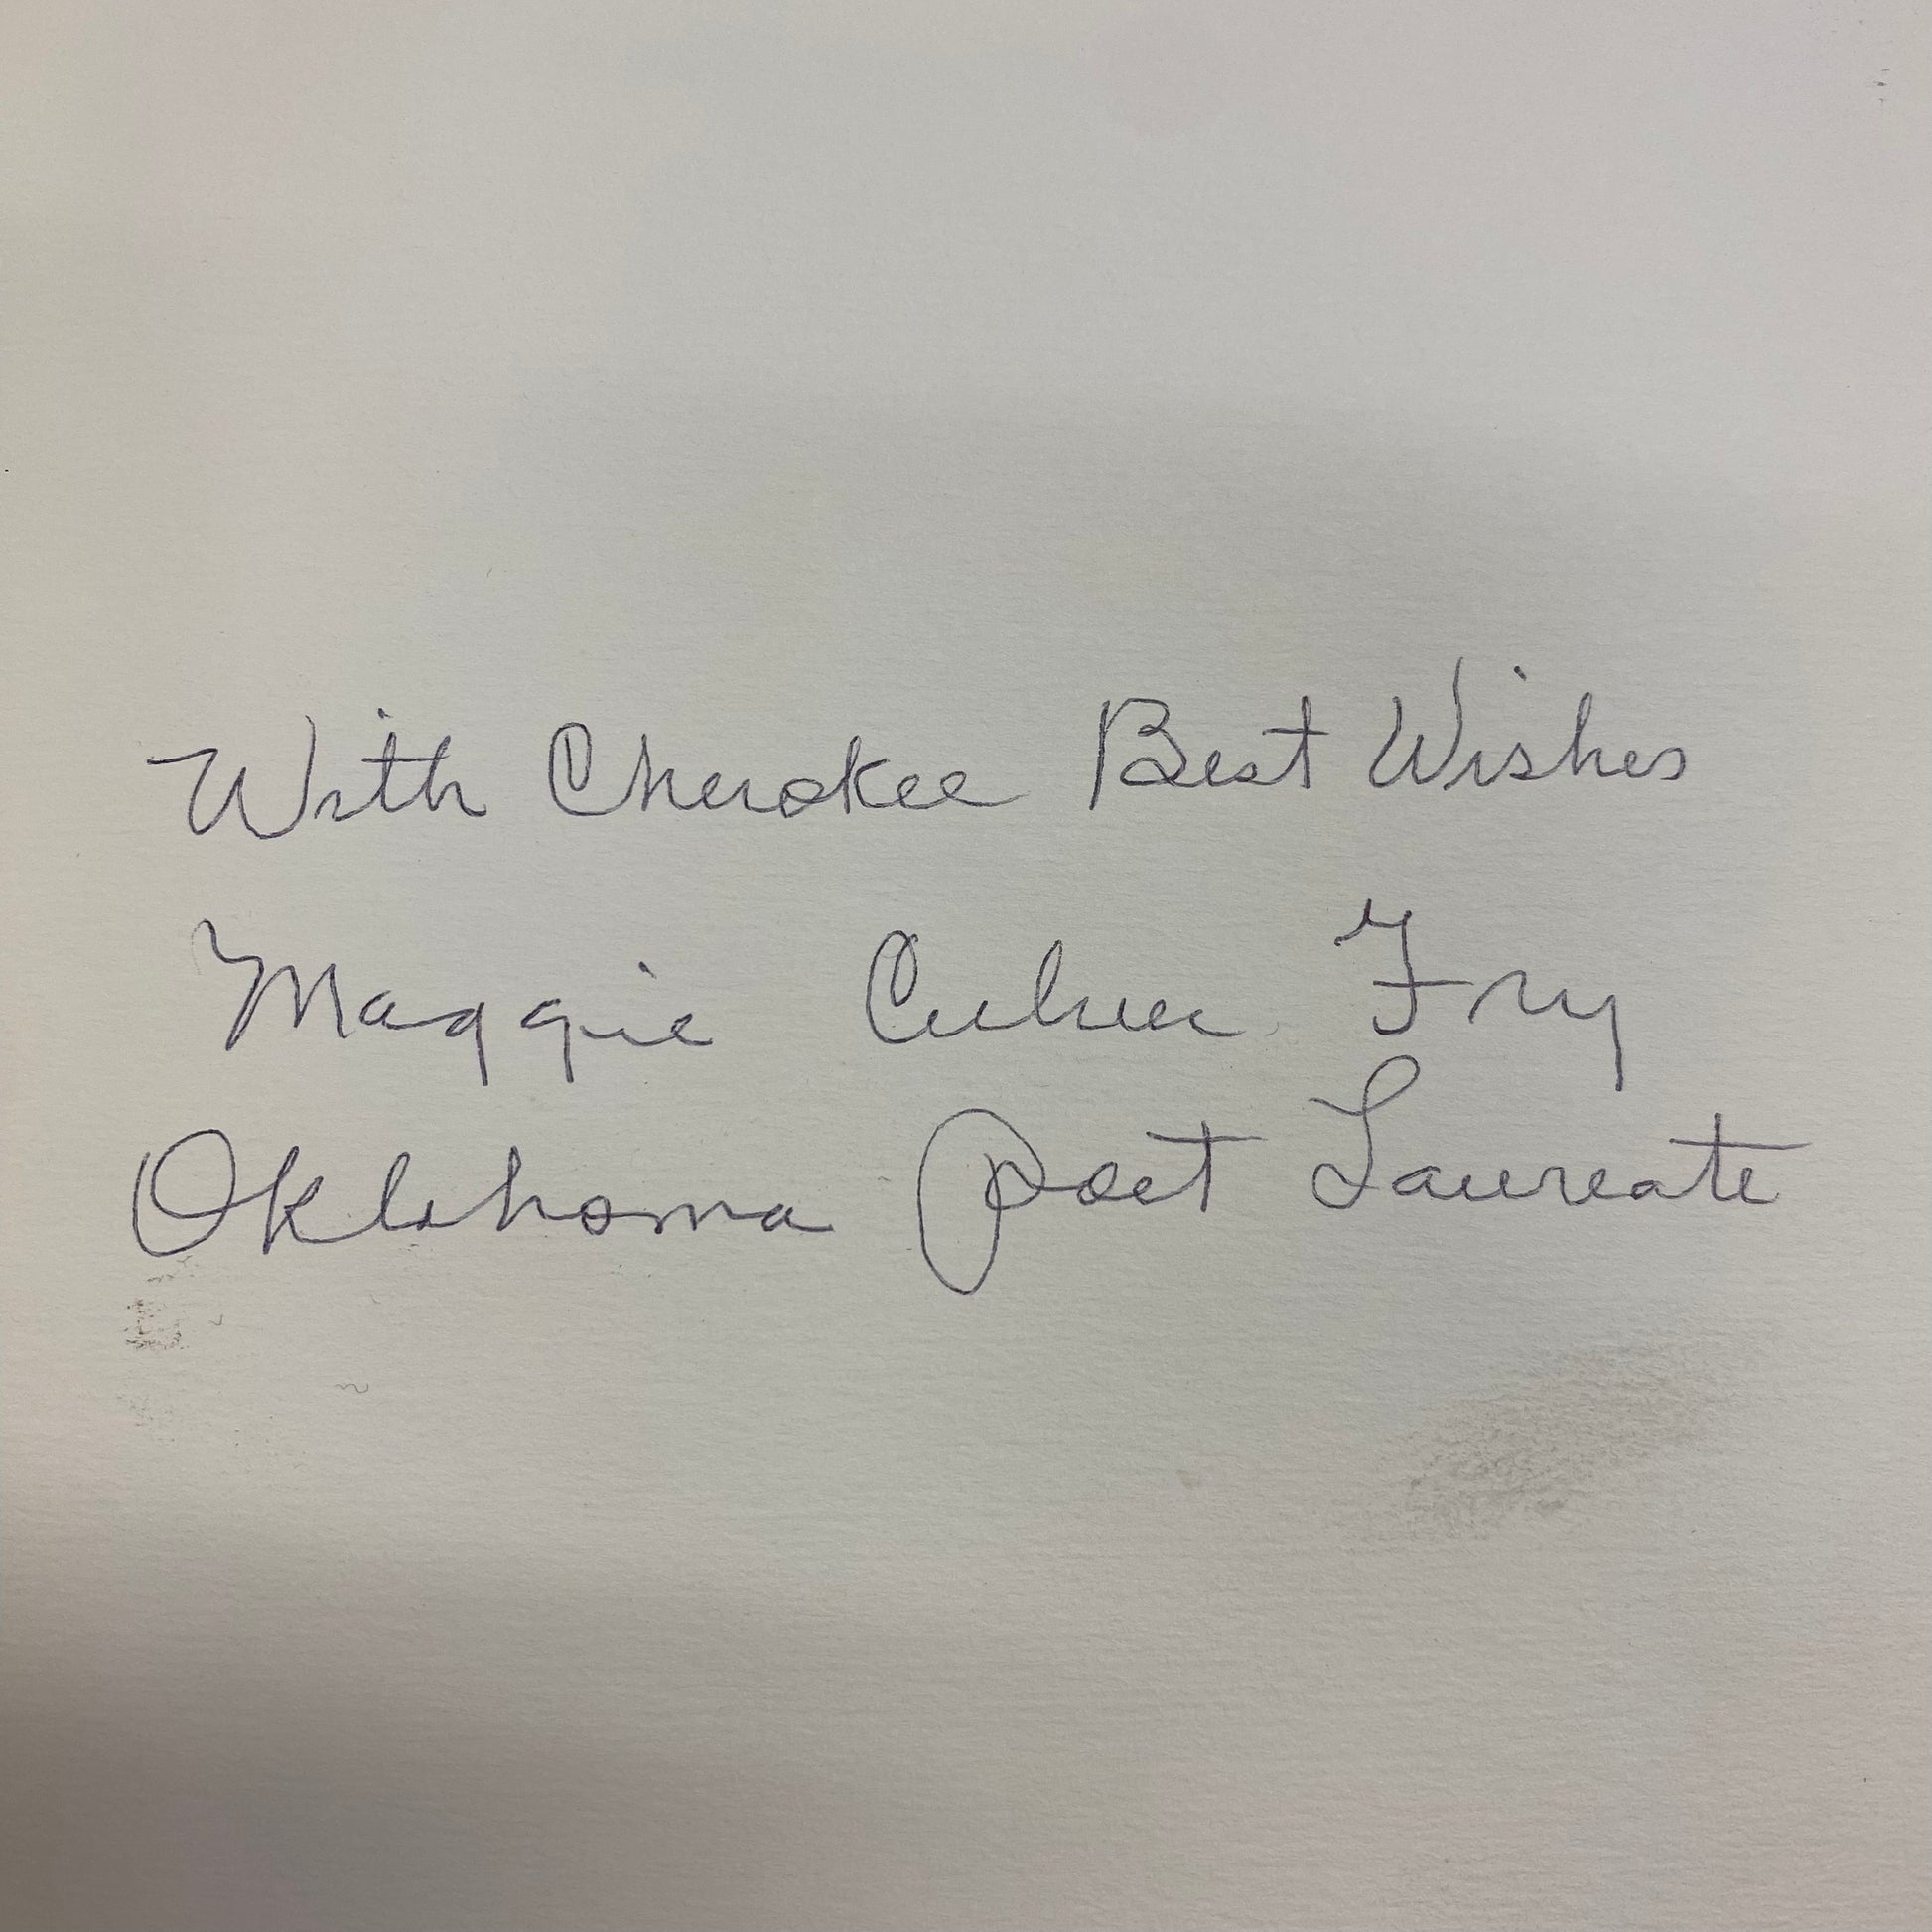 With Cherokee Best Wishes
Maggie Culver Fry
Oklahoma Poet Laureate